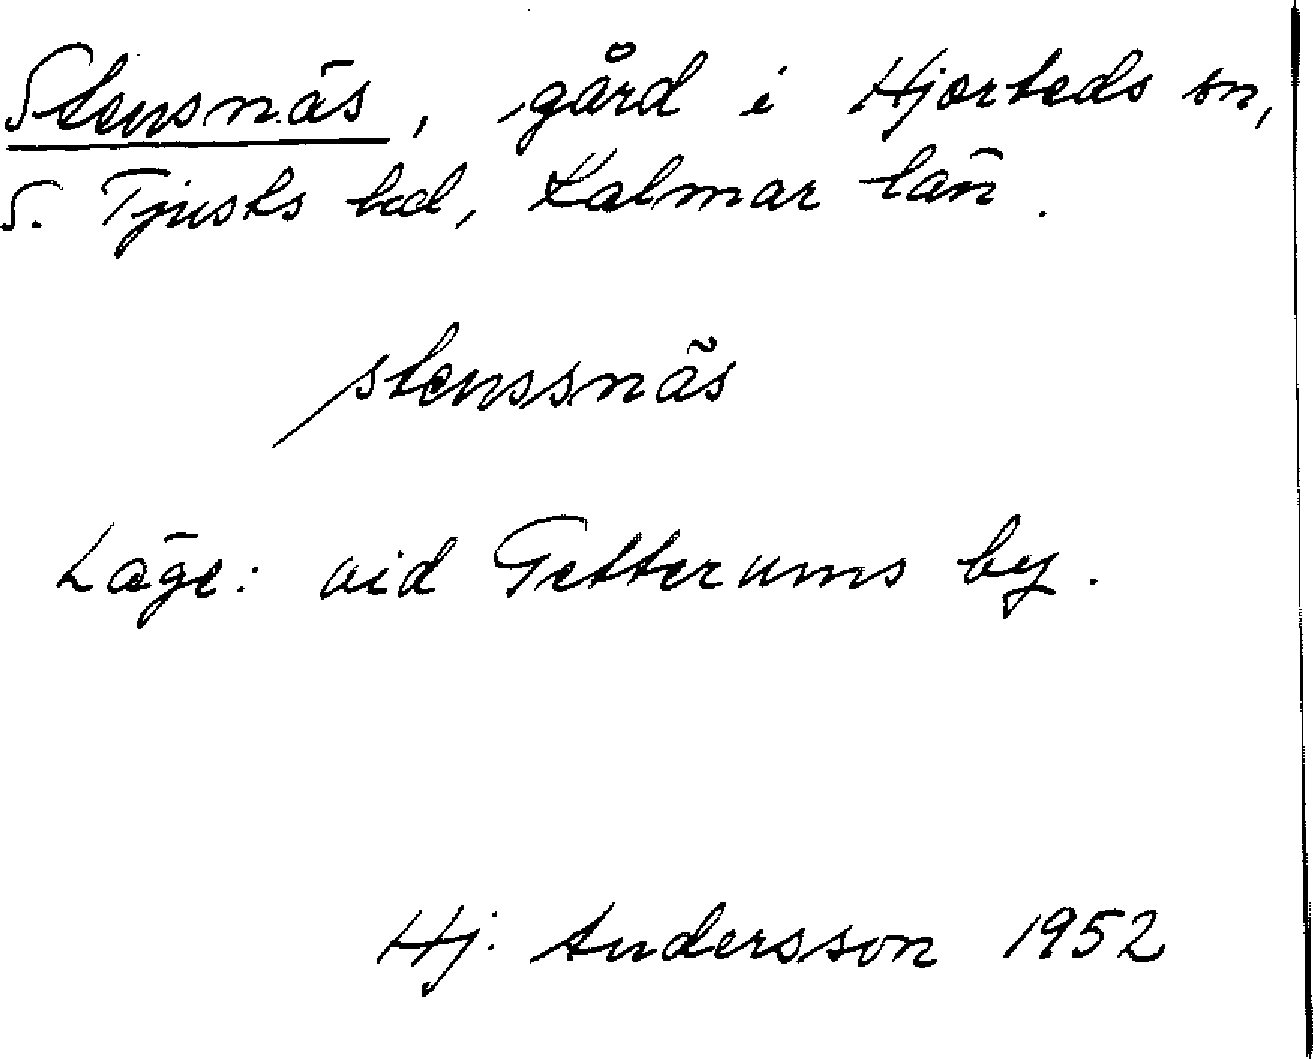 Stensnäs, gård i Hjorteds sn,
S. Tjusts hd, Kalmar län.
stenssnäs
Läge: vid Getterums by.
Hj. Andersson 1952